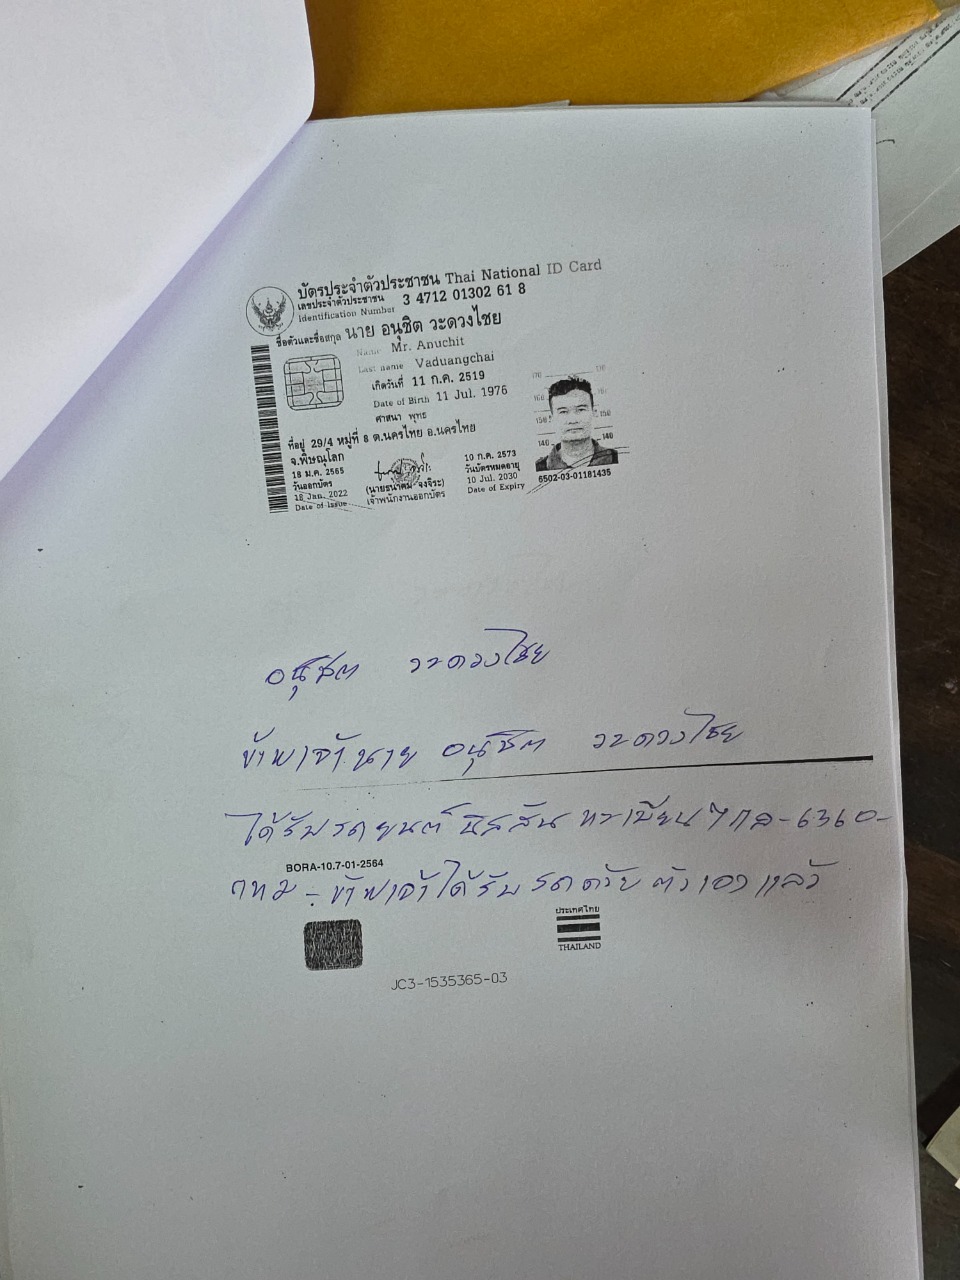 บัตรประจำตัวประชาชน Thai National ID Card
เลขประจำตัวประชาชน 3 4712 01302 61 8
Identification Number
ชื่อตัวและชื่อสกุล นาย อนุชิต วะดวงไชย
Name Mr. Anuchit
Last name Vaduangchai
เกิดวันที่ 11 ก.ค. 2519
Date of Birth 11 Jul. 1976
ศาสนา พุทธ
ที่อยู่ 29/4 หมู่ที่ 8 ต.นครไทย อ.นครไทย
จ.พิษณุโลก
18 ม.ค. 2565
วันออกบัตร
18 Jan. 2022
Date of Issue
เจ้าพนักงานออกบัตร
10 ก.ค. 2573
วันบัตรหมดอายุ
10 Jul. 2030
Date of Expiry
170
160 160
150 150
140 140
6502-03-01181435
อนุชิต วะดวงไชย
ข้าพเจ้า นาย อนุชิต วะดวงไชย
ได้รับรถยนต์ นิสสัน ทะเบียน -6360-
กทม - ข้าพเจ้าได้รับรถด้วยตัวเองแล้ว
BORA-10.7-01-2564
ประเทศไทย
THAILAND
JC3-1535365-03